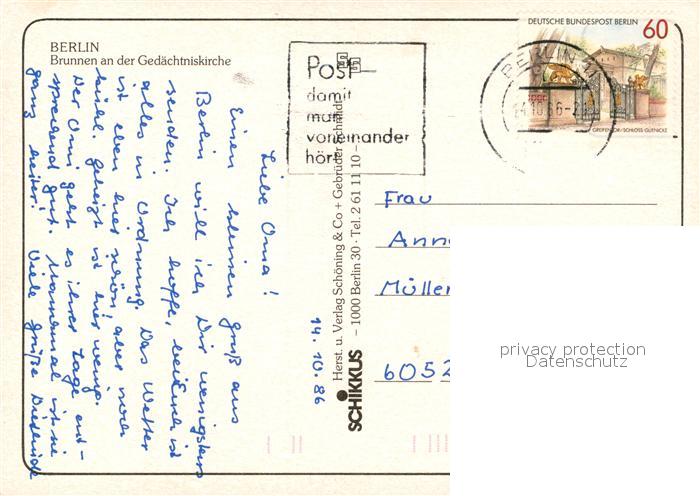 BERLIN
Brunnen an der Gedächtniskirche
Liebe Oma!
Einen kleinen Gruß aus
Berlin will ich Dir wenigstens
senden. Ich hoffe, bei Euch ist
alles in Ordnung. Das Wetter
ist eben hier schön, aber noch
kühl. Geheizt ist hier wenig.
Der Omi geht es ihrer Tage ent-
sprechend gut. Manchmal ist sie
ganz heiter. Viele Grüße
14.10.86
Post
damit
man
voneinander
hört
SCHIKKUS
Herst. u. Verlag Schöning & Co + Gebrüder Schmidt
– 1000 Berlin 30 · Tel. 2 61 11 10 –
DEUTSCHE BUNDESPOST BERLIN
60
BERLIN
Frau
Ann
Müller
6052
privacy protection
Datenschutz